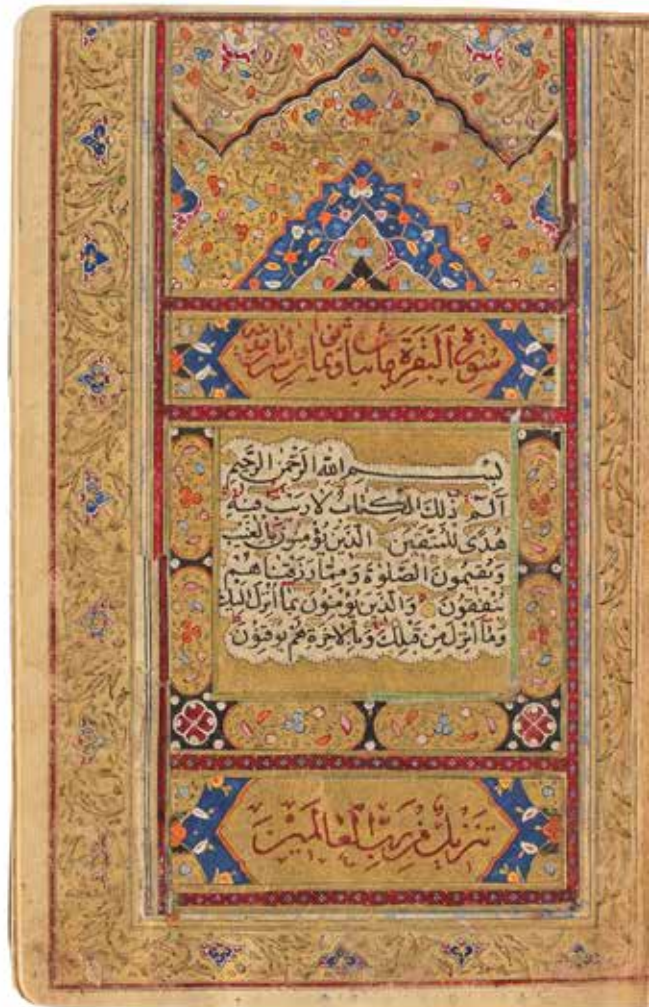 سُورَةُ الْبَقَرَةِ مِائتان وثمان آيات
بِسْمِ اللهِ الرَّحْمٰنِ الرَّحِيمِ
الٓمٓ ذٰلِكَ الْكِتَابُ لَا رَيْبَ فِيهِ
هُدًى لِلْمُتَّقِينَ الَّذِينَ يُؤْمِنُونَ بِالْغَيْبِ
وَيُقِيمُونَ الصَّلٰوةَ وَمِمَّا رَزَقْنَاهُمْ
يُنْفِقُونَ وَالَّذِينَ يُؤْمِنُونَ بِمَا أُنْزِلَ إِلَيْكَ
وَمَا أُنْزِلَ مِنْ قَبْلِكَ وَبِالْآخِرَةِ هُمْ يُوقِنُونَ
تَنْزِيلٌ مِنْ رَبِّ الْعَالَمِينَ